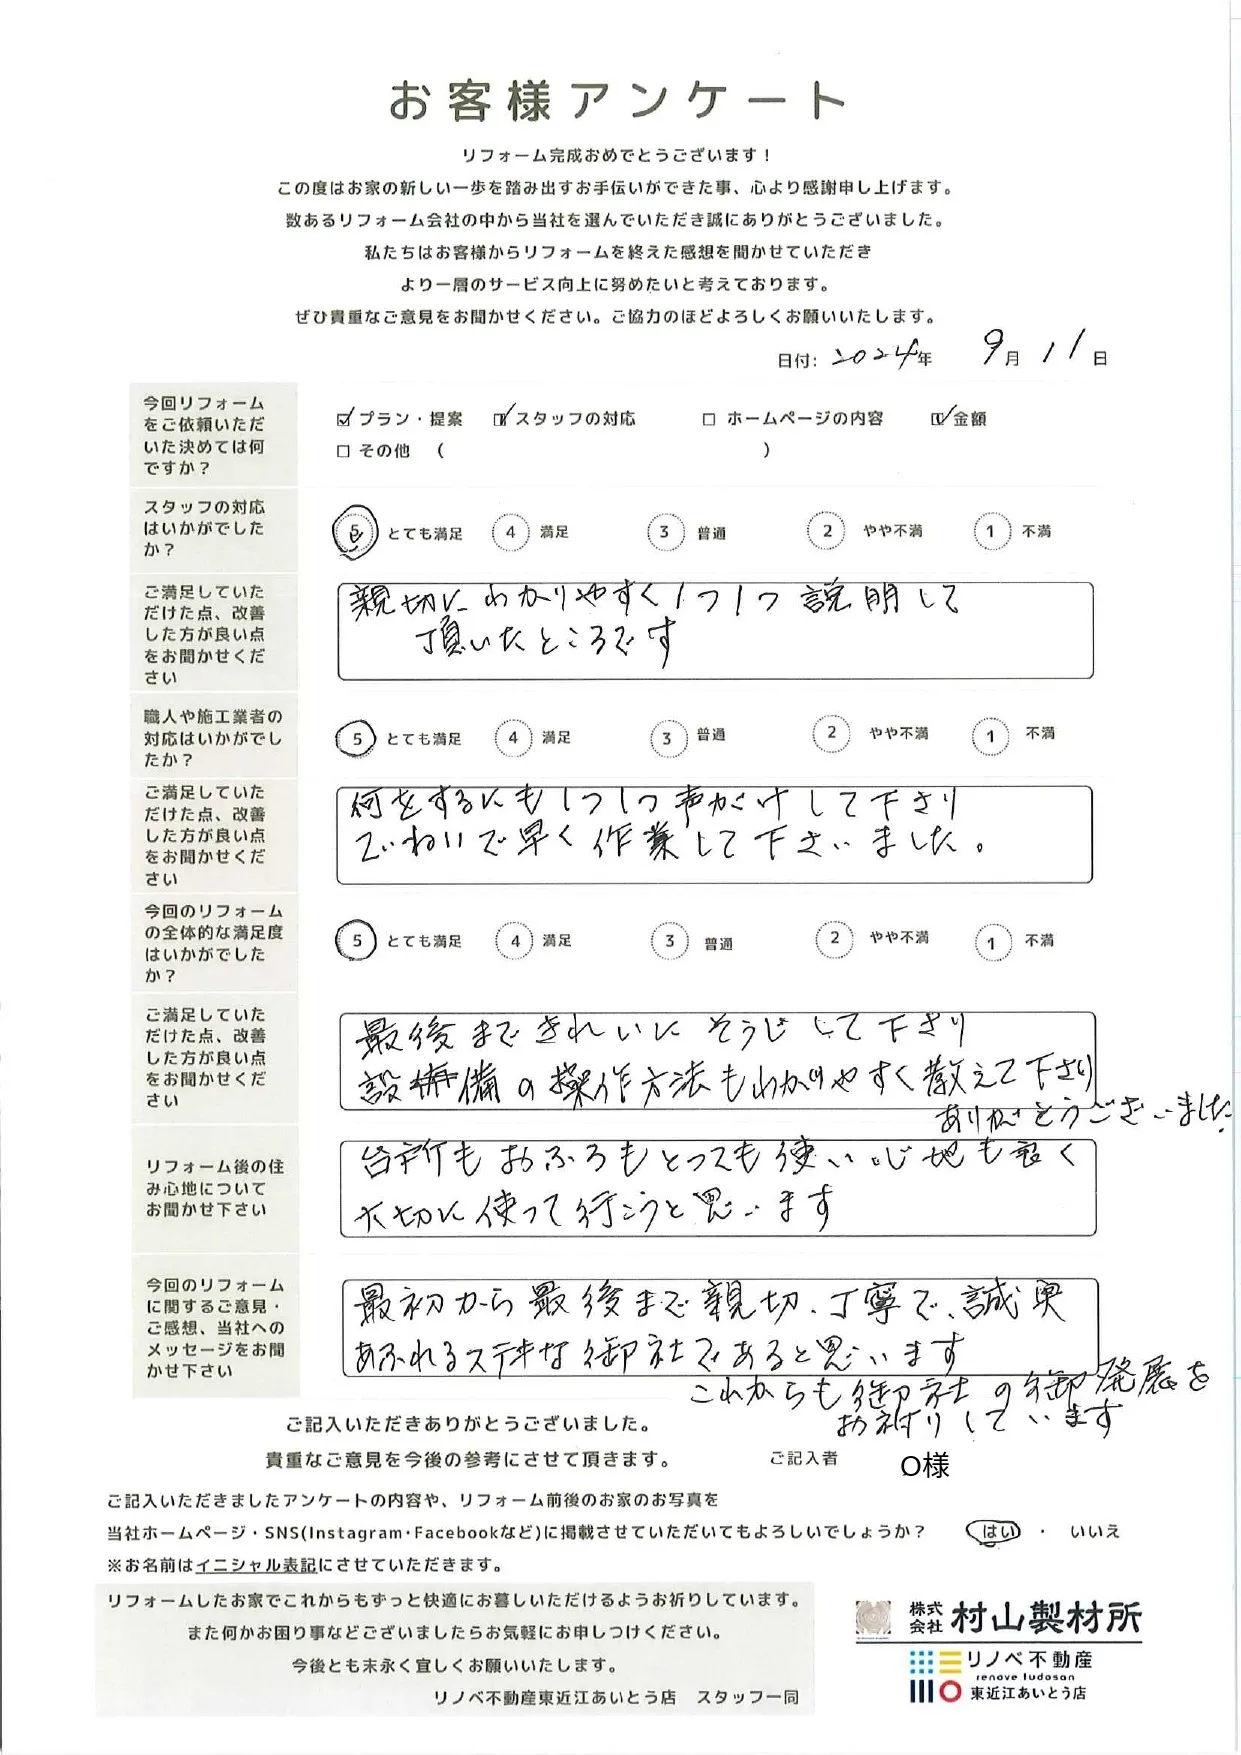 お客様アンケート
リフォーム完成おめでとうございます！
この度はお家の新しい一歩を踏み出すお手伝いができた事、心より感謝申し上げます。
数あるリフォーム会社の中から当社を選んでいただき誠にありがとうございました。
私たちはお客様からリフォームを終えた感想を聞かせていただき
より一層のサービス向上に努めたいと考えております。
ぜひ貴重なご意見をお聞かせください。ご協力のほどよろしくお願いいたします。
日付: 2024年 9月 11日
今回リフォーム
をご依頼いただ
いた決めては何
ですか？
☑ プラン・提案 ☑ スタッフの対応 ☐ ホームページの内容 ☑ 金額
☐ その他 ( )
スタッフの対応
はいかがでした
か？
5 とても満足 4 満足 3 普通 2 やや不満 1 不満
ご満足していた
だけた点、改善
した方が良い点
をお聞かせくだ
さい
親切に わかりやすく1つ1つ 説明して
頂いたところです
職人や施工業者の
対応はいかがでし
たか？
5 とても満足 4 満足 3 普通 2 やや不満 1 不満
ご満足していた
だけた点、改善
した方が良い点
をお聞かせくだ
さい
何をするにも1つ1つ声がけして下さり
ていねいで早く作業して下さいました。
今回のリフォーム
の全体的な満足度
はいかがでした
か？
5 とても満足 4 満足 3 普通 2 やや不満 1 不満
ご満足していた
だけた点、改善
した方が良い点
をお聞かせくだ
さい
最後まできれいにそうじして下さり
設備の操作方法もわかりやすく教えて下さり
ありがとうございました.
リフォーム後の住
み心地について
お聞かせ下さい
台所もおふろもとっても使い心地も良く
大切に使って行こうと思います
今回のリフォーム
に関するご意見・
ご感想、当社への
メッセージをお聞
かせ下さい
最初から最後まで親切、丁寧で、誠実
あふれるステキな御社であると思います
これからも御社の御発展を
お祈りしています
ご記入いただきありがとうございました。
貴重なご意見を今後の参考にさせて頂きます。
ご記入者 O様
ご記入いただきましたアンケートの内容や、リフォーム前後のお家のお写真を
当社ホームページ・SNS(Instagram・Facebookなど)に掲載させていただいてもよろしいでしょうか？ はい ・ いいえ
※お名前はイニシャル表記にさせていただきます。
リフォームしたお家でこれからもずっと快適にお暮しいただけるようお祈りしています。
また何かお困り事などございましたらお気軽にお申しつけください。
今後とも末永く宜しくお願いいたします。
リノベ不動産東近江あいとう店 スタッフ一同
株式会社 村山製材所
リノベ不動産
renove fudosan
東近江あいとう店